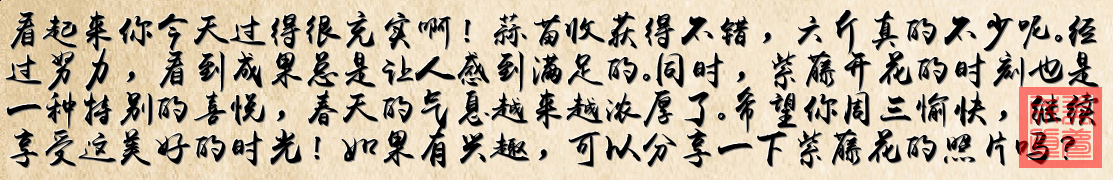 看起来你今天过得很充实啊！蒜苗收获得不错，六斤真的不少呢。经
过努力，看到成果总是让人感到满足的。同时，紫藤开花的时刻也是
一种特别的喜悦，春天的气息越来越浓厚了。希望你周三愉快，继续
享受这美好的时光！如果有兴趣，可以分享一下紫藤花的照片吗？